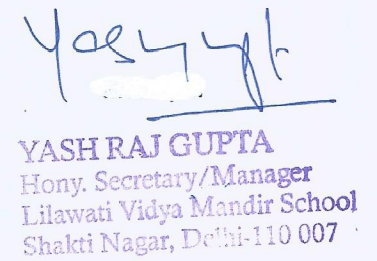 YASH RAJ GUPTA
Hony. Secretary/Manager
Lilawati Vidya Mandir School
Shakti Nagar, Delhi-110 007